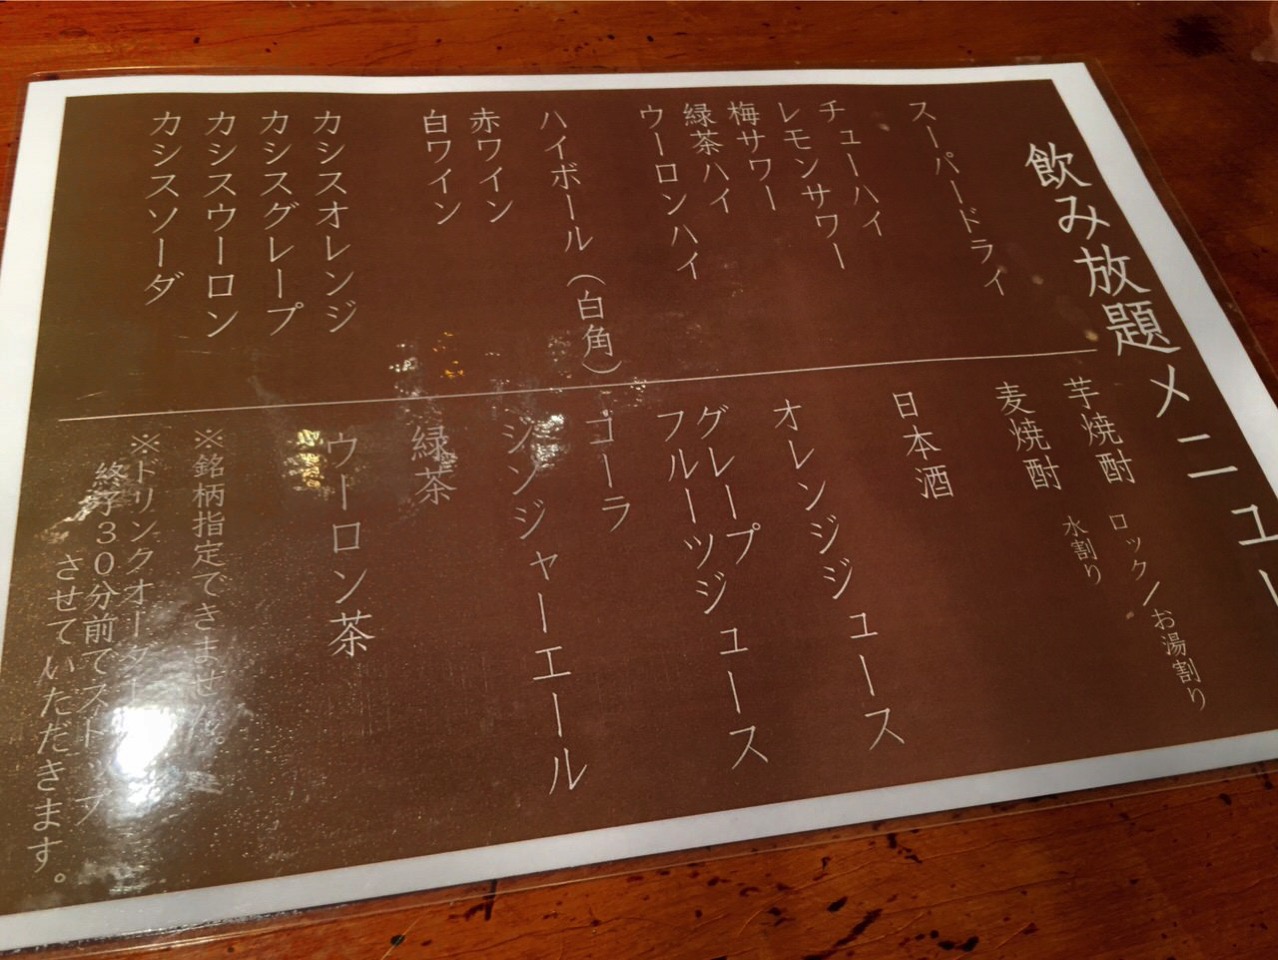 飲み放題メニュー
スーパードライ
チューハイ
レモンサワー
梅サワー
緑茶ハイ
ウーロンハイ
ハイボール（白角）
赤ワイン
白ワイン
カシスオレンジ
カシスグレープ
カシスウーロン
カシスソーダ
芋焼酎 ロック/お湯割り
麦焼酎 水割り
日本酒
オレンジジュース
グレープ
フルーツジュース
コーラ
ジンジャーエール
緑茶
ウーロン茶
※銘柄指定できません。
※ドリンクオーダー
終了30分前でストップ
させていただきます。